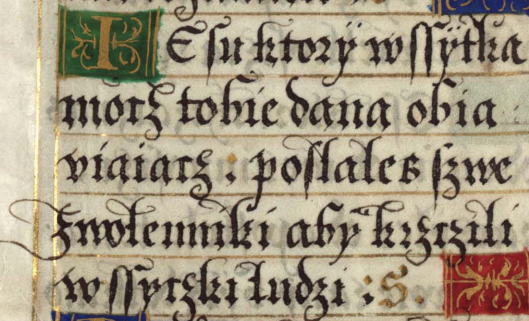 IEsu ktorÿ wssÿtka
mocz tobie dana obia
viaiacz . poslales szwe
zwolenniki abÿ krzczili
wssyczki ludzi : S.